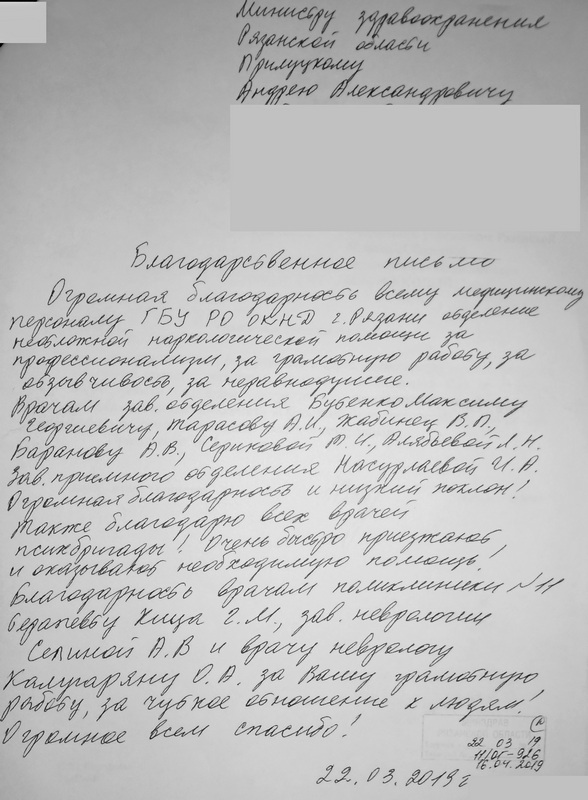 Министру здравоохранения
Рязанской области
Прилуцкому
Андрею Александровичу
Благодарственное письмо
Огромная благодарность всему медицинскому
персоналу ГБУ РО ОКНД г. Рязани отделение
неотложной наркологической помощи за
профессионализм, за грамотную работу, за
отзывчивость, за неравнодушие.
Врачам зав. отделения Бутенко Максиму
Георгиевичу, Тарасову А.И., Жабинец В.П.,
Баранову А.В., Сериковой Т.И., Алябьевой Л.Н.
Зав. приемного отделения Насурлаевой И.А.
Огромная благодарность и низкий поклон!
Также благодарю всех врачей
психбригады! Очень быстро приезжают
и оказывают необходимую помощь!
Благодарность врачам поликлиники №11
терапевту Кица Г.М., зав. неврологии
Сепиной А.В и врачу неврологу
Калугаряну О.А. за Вашу грамотную
работу, за чуткое отношение к людям!
Огромное всем спасибо!
22 03 19
11/ОГ-926
16.04.2019
22.03.2019 г